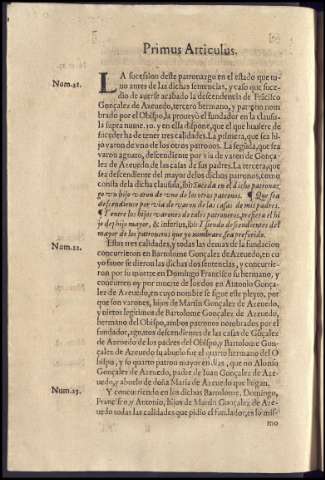 Primus Articulus.
Num.21.
LA sucession deste patronazgo en el estado que tu-
uo antes de las dichas sentencias, y caso que suce-
dio de auerse acabado la descendencia de Frãcisco
Gonçalez de Azeuedo, tercero hermano, y patron nom
brado por el Obispo, la proueyò el fundador en la clausu-
la supra nume. 10. y en ella dispone, que el que huuiere de
suceder ha de tener tres calidades. La primera, que sea hi-
jo varon de vno de los otros patrones. La segũda, que sea
varon agnato, descendiente por via de varon de Gonça-
lez de Azeuedo de las casas de sus padres. La tercera, que
sea descendiente del mayor de los dichos patrones, como
consta de la dicha clausula, ibi: Suceda en el dicho patronaz
go vn hijo varon de vno de los otros patrones. ¶ Que sea
descendiente por via de varon de las casas de mis padres.
¶ Y entre los hijos varones de tales patrones, prefiera el hi
jo de hijo mayor, & inferius, ibi: I siendo descendientes del
mayor de los patrones que yo nombrare sea preferido.
Num.22.
Estas tres calidades, y todas las demas de la fundacion
concurrieron en Bartolome Gonçalez de Azeuedo, en cu
yo fauor se dieron las dichas dos sentencias, y concurrie-
ron por su muerte en Domingo Francisco su hermano, y
concurren oy por muerte de los dos en Antonio Gonça-
lez de Azeuedo, en cuyo nombre se sigue este pleyto, por
que son varones, hijos de Martin Gonçalez de Azeuedo,
y nietos legitimos de Bartolome Gonçalez de Azeuedo,
hermano del Obispo, ambos patrones nombrados por el
fundador, agnatos descendientes de las casas de Gonçalez
de Azeuedo de los padres del Obispo, y Bartolome Gon-
çalez de Azeuedo su abuelo fue el quarto hermano del O
bispo, y
Gonçalez de Azeuedo, padre de Iuan Gonçalez de Aze-
uedo, y abuelo de doña Maria de Azeuedo que litigan.
Num.23.
Y concurriendo en los dichos Bartolome, Domingo,
Francisco, y Antonio, hijos de Martin Gonçalez de Aze-
uedo todas las calidades que pidio el fundador, en lo mis-
mo